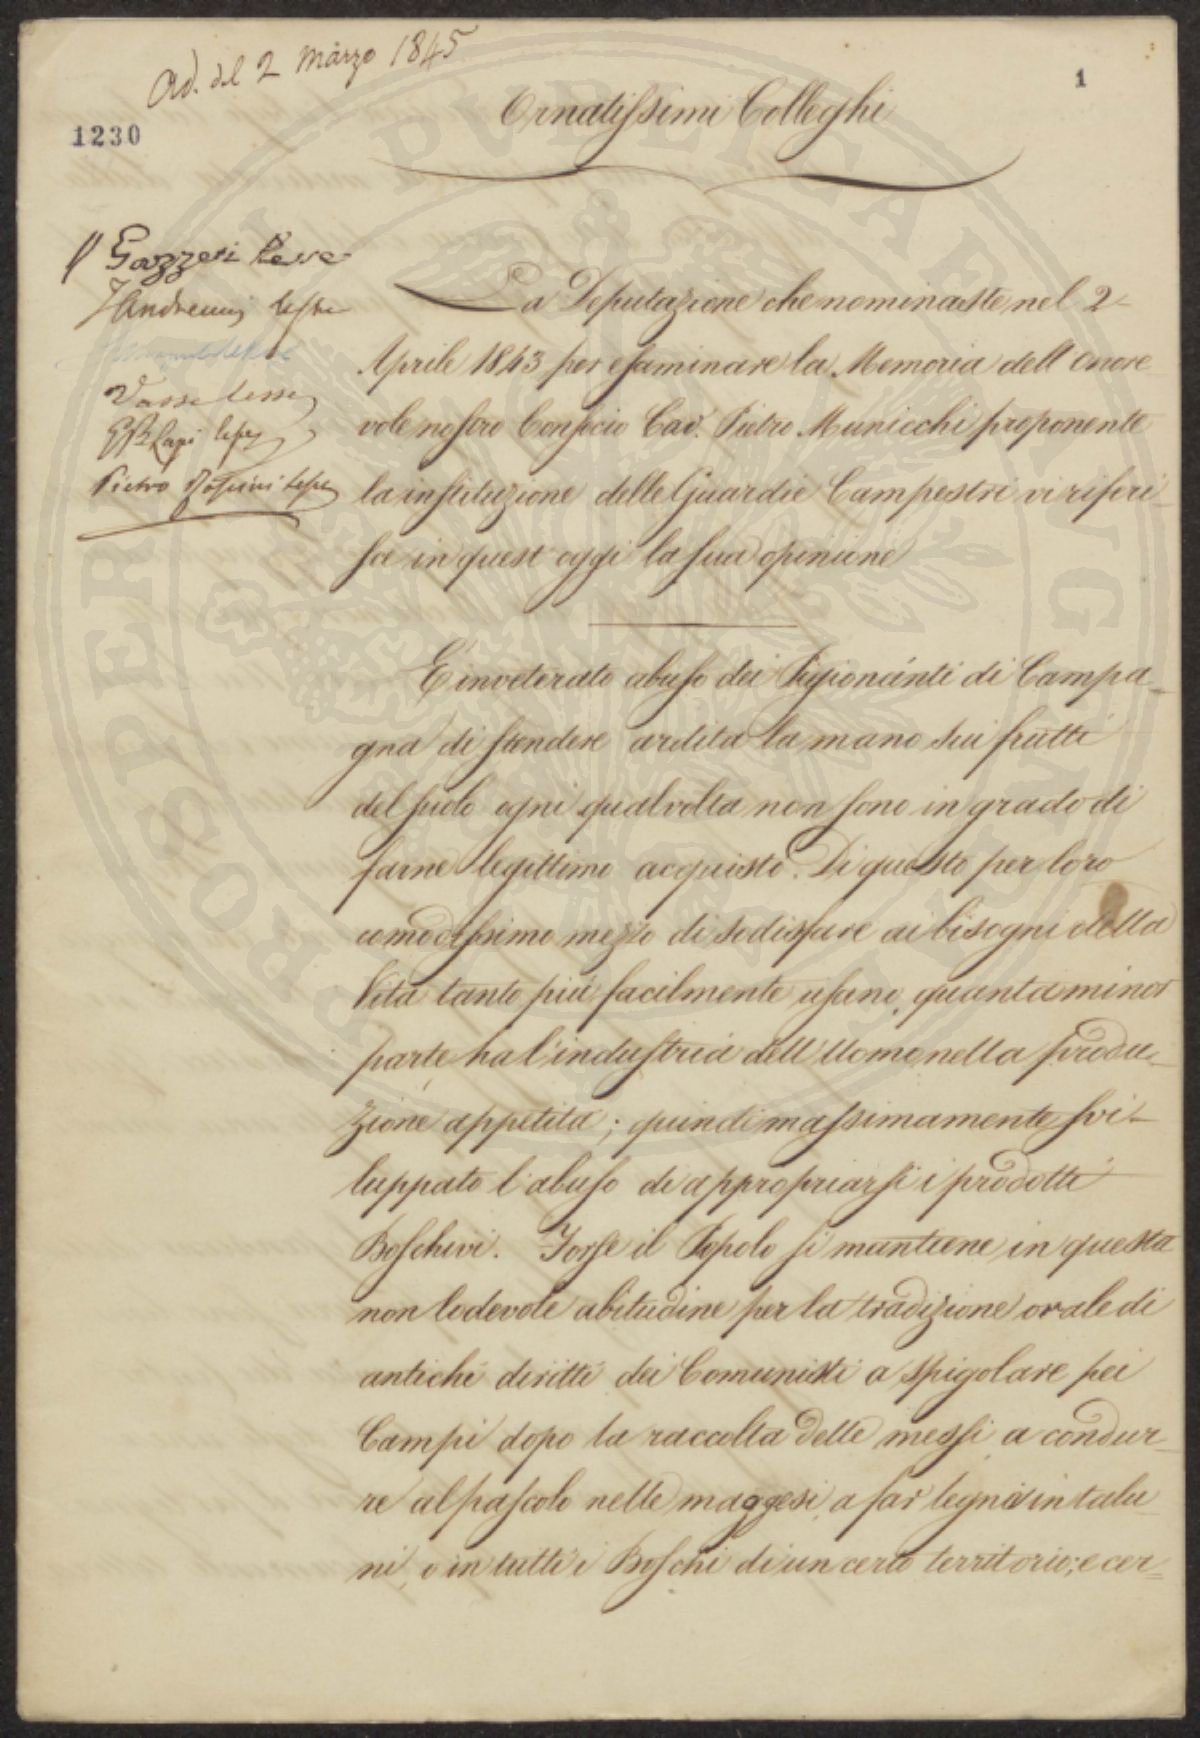 Ad. del 2 Marzo 1845
1
1230
Ornatissimi Colleghi
Gazzeri
Vasse lesse
Lapi
Pietro
La Deputazione che nominaste nel 2
Aprile 1843 per esaminare la Memoria dell'onore-
vole nostro Consocio Cav. Pietro Municchi proponente
la instituzione delle Guardie Campestri vi riferi-
sce in quest'oggi la sua opinione
E' inveterato abuso dei Pigionanti di Campa-
gna di stendere ardita la mano sui frutti
del suolo ogni qualvolta non sono in grado di
farne legittimo acquisto. Di questo per loro
comodissimo mezzo di sodisfare ai bisogni della
Vita tanto più facilmente usano, quanta minor
parte ha l'industria dell'Uomo nella produ-
zione appetita; quindi massimamente svi-
luppato l'abuso di appropriarsi i prodotti
Boschivi. Forse il Popolo si mantiene in questa
non lodevole abitudine per la tradizione orale di
antichi diritti dei Comunisti a spigolare pei
Campi dopo la raccolta delle messi a condur-
re al pascolo nelle maggesi, a far legna in talu-
ni, o in tutti i Boschi di un certo territorio; e cer-
PROSPERITATI PUBLICAE AUGENDAE